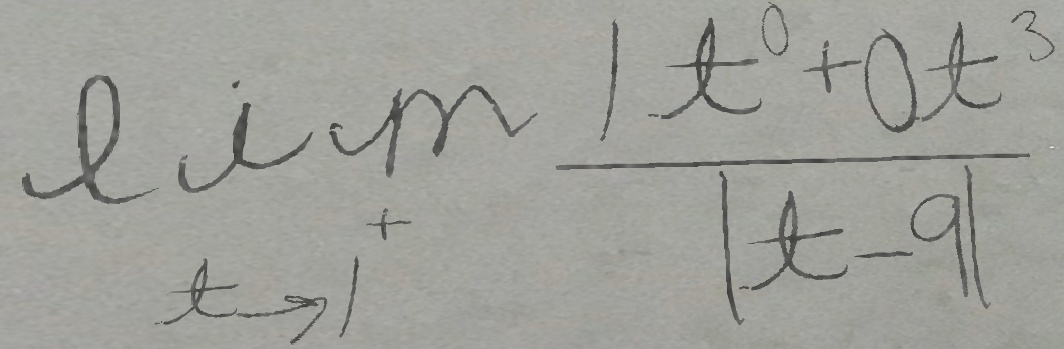 \lim_{t \to 1^+} \frac{1t^0 + 0t^3}{|t - 9|}